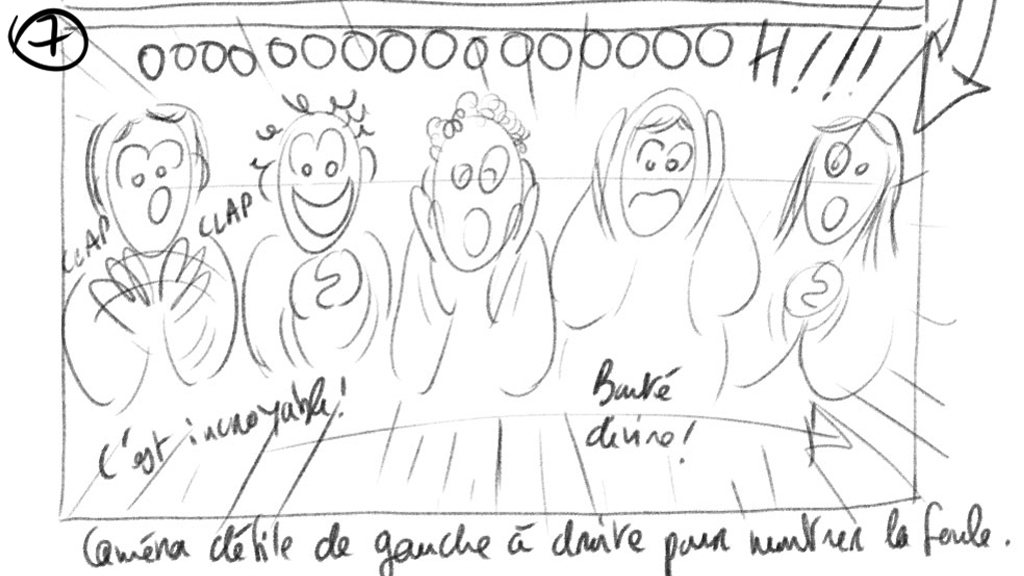 7
OOOOOOOOOOOOOOO H!!!!
CLAP CLAP
C'est incroyable!
Bonté
divine!
Caméra défile de gauche à droite pour montrer la foule.